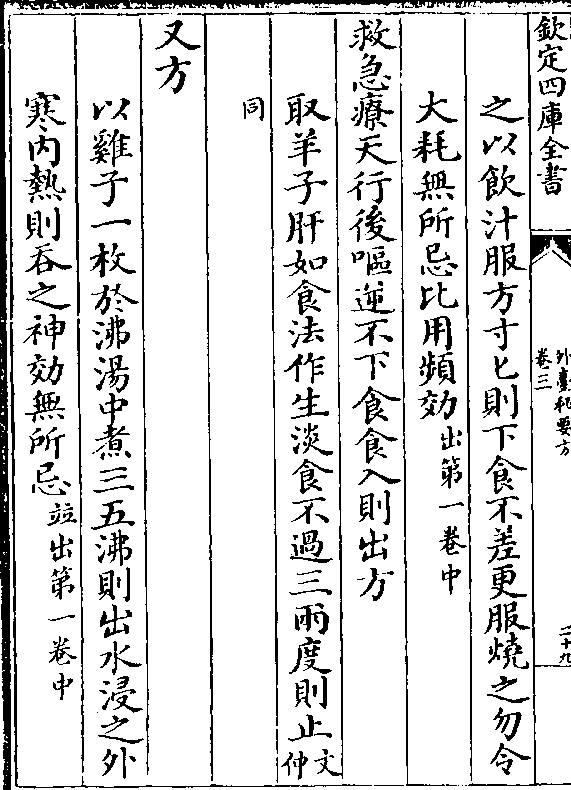 欽定四庫全書
外臺秘要方
卷三
二十九
之以飲汁服方寸匕則下食不差更服燒之勿令
大耗無所忌比用頻効出第一卷中
救急療天行後嘔逆不下食食入則出方
取羊子肝如食法作生淡食不過三兩度則止文仲
同
又方
以雞子一枚於沸湯中煮三五沸則出水浸之外
寒內熱則吞之神効無所忌並出第一卷中